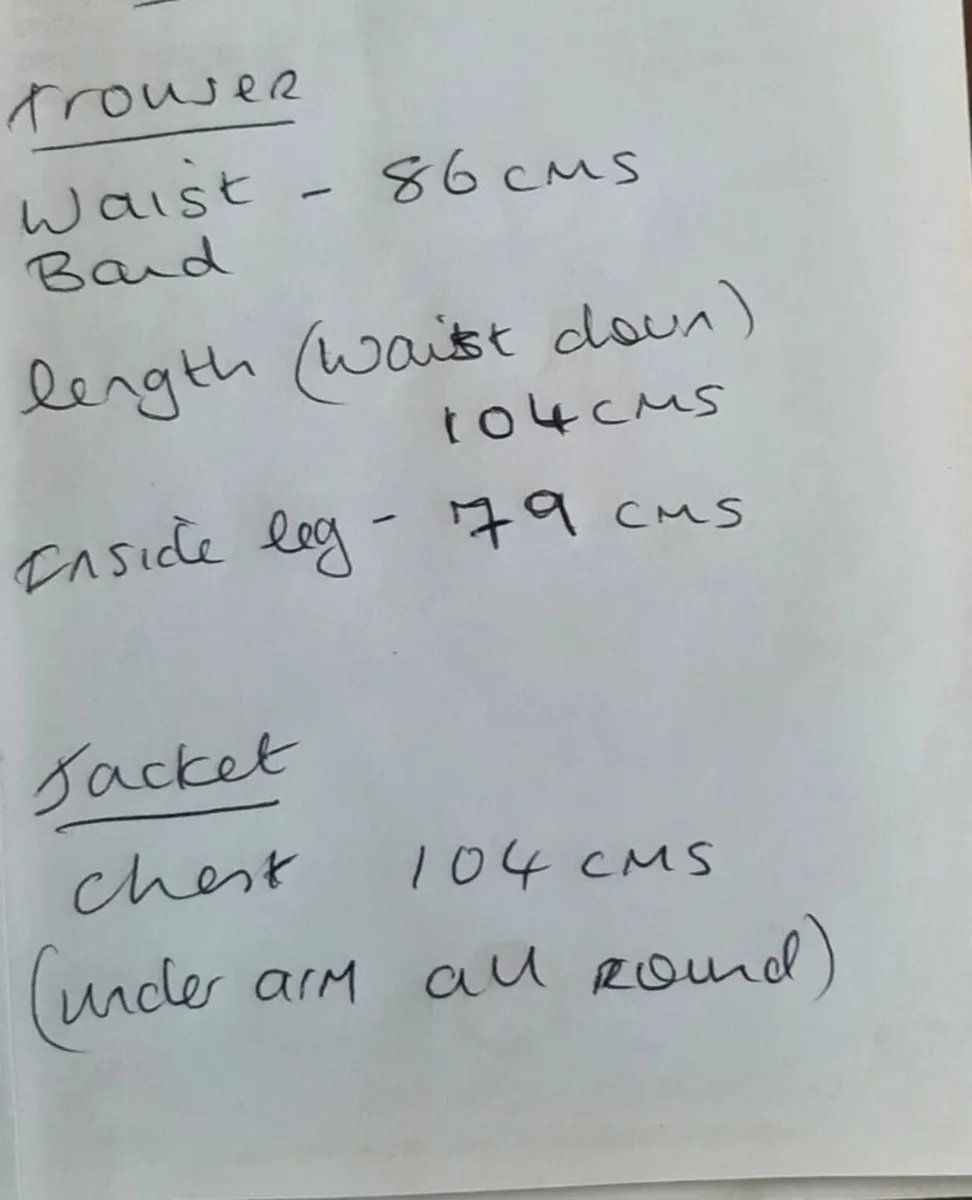 Trouser
Waist - 86 cms
Band
length (Waist down)
104 cms
Inside leg - 79 cms
Jacket
Chest 104 cms
(under arm all round)